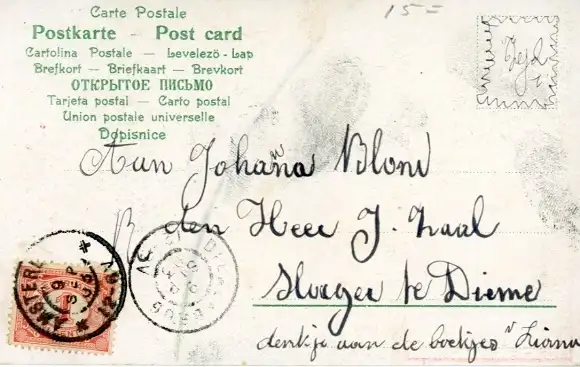 Carte Postale
Postkarte – Post card
Cartolina Postale – Levelező-Lap
Brefkort – Briefkaart – Brevkort
ОТКРЫТОЕ ПИСЬМО
Tarjeta postal – Carto postal
Union postale universelle
Dopisnice
15=
Aan Johana Blom
den Heer J.
Slager te Dieme
denkje aan de boekjes
AMSTERD